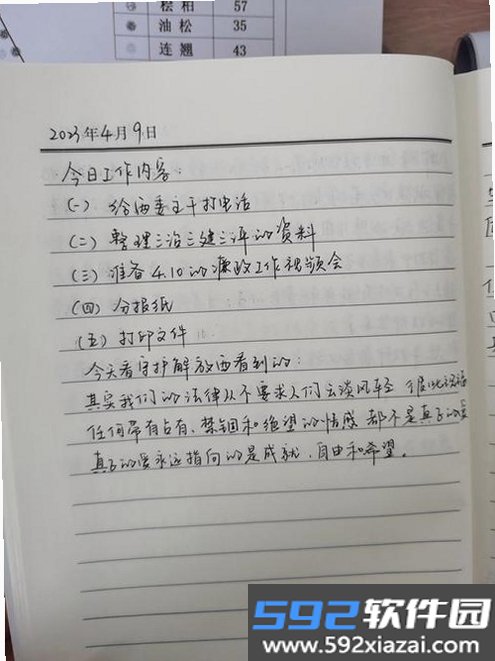 桧柏 57
油松 35
连翘 43
2023年4月9日
今日工作内容:
(一) 给两委主干打电话
(二) 整理三治三建三评的资料
(三) 准备4.10的廉政工作视频会
(四) 分报纸
(五) 打印文件
今天看守护解放西看到的:
其实我们的法律从不要求人们云淡风轻
任何带有占有、禁锢和绝望的情感都不是真正的爱
真正的爱永远指向的是成就,自由和希望。
592软件园
www.592xiazai.com